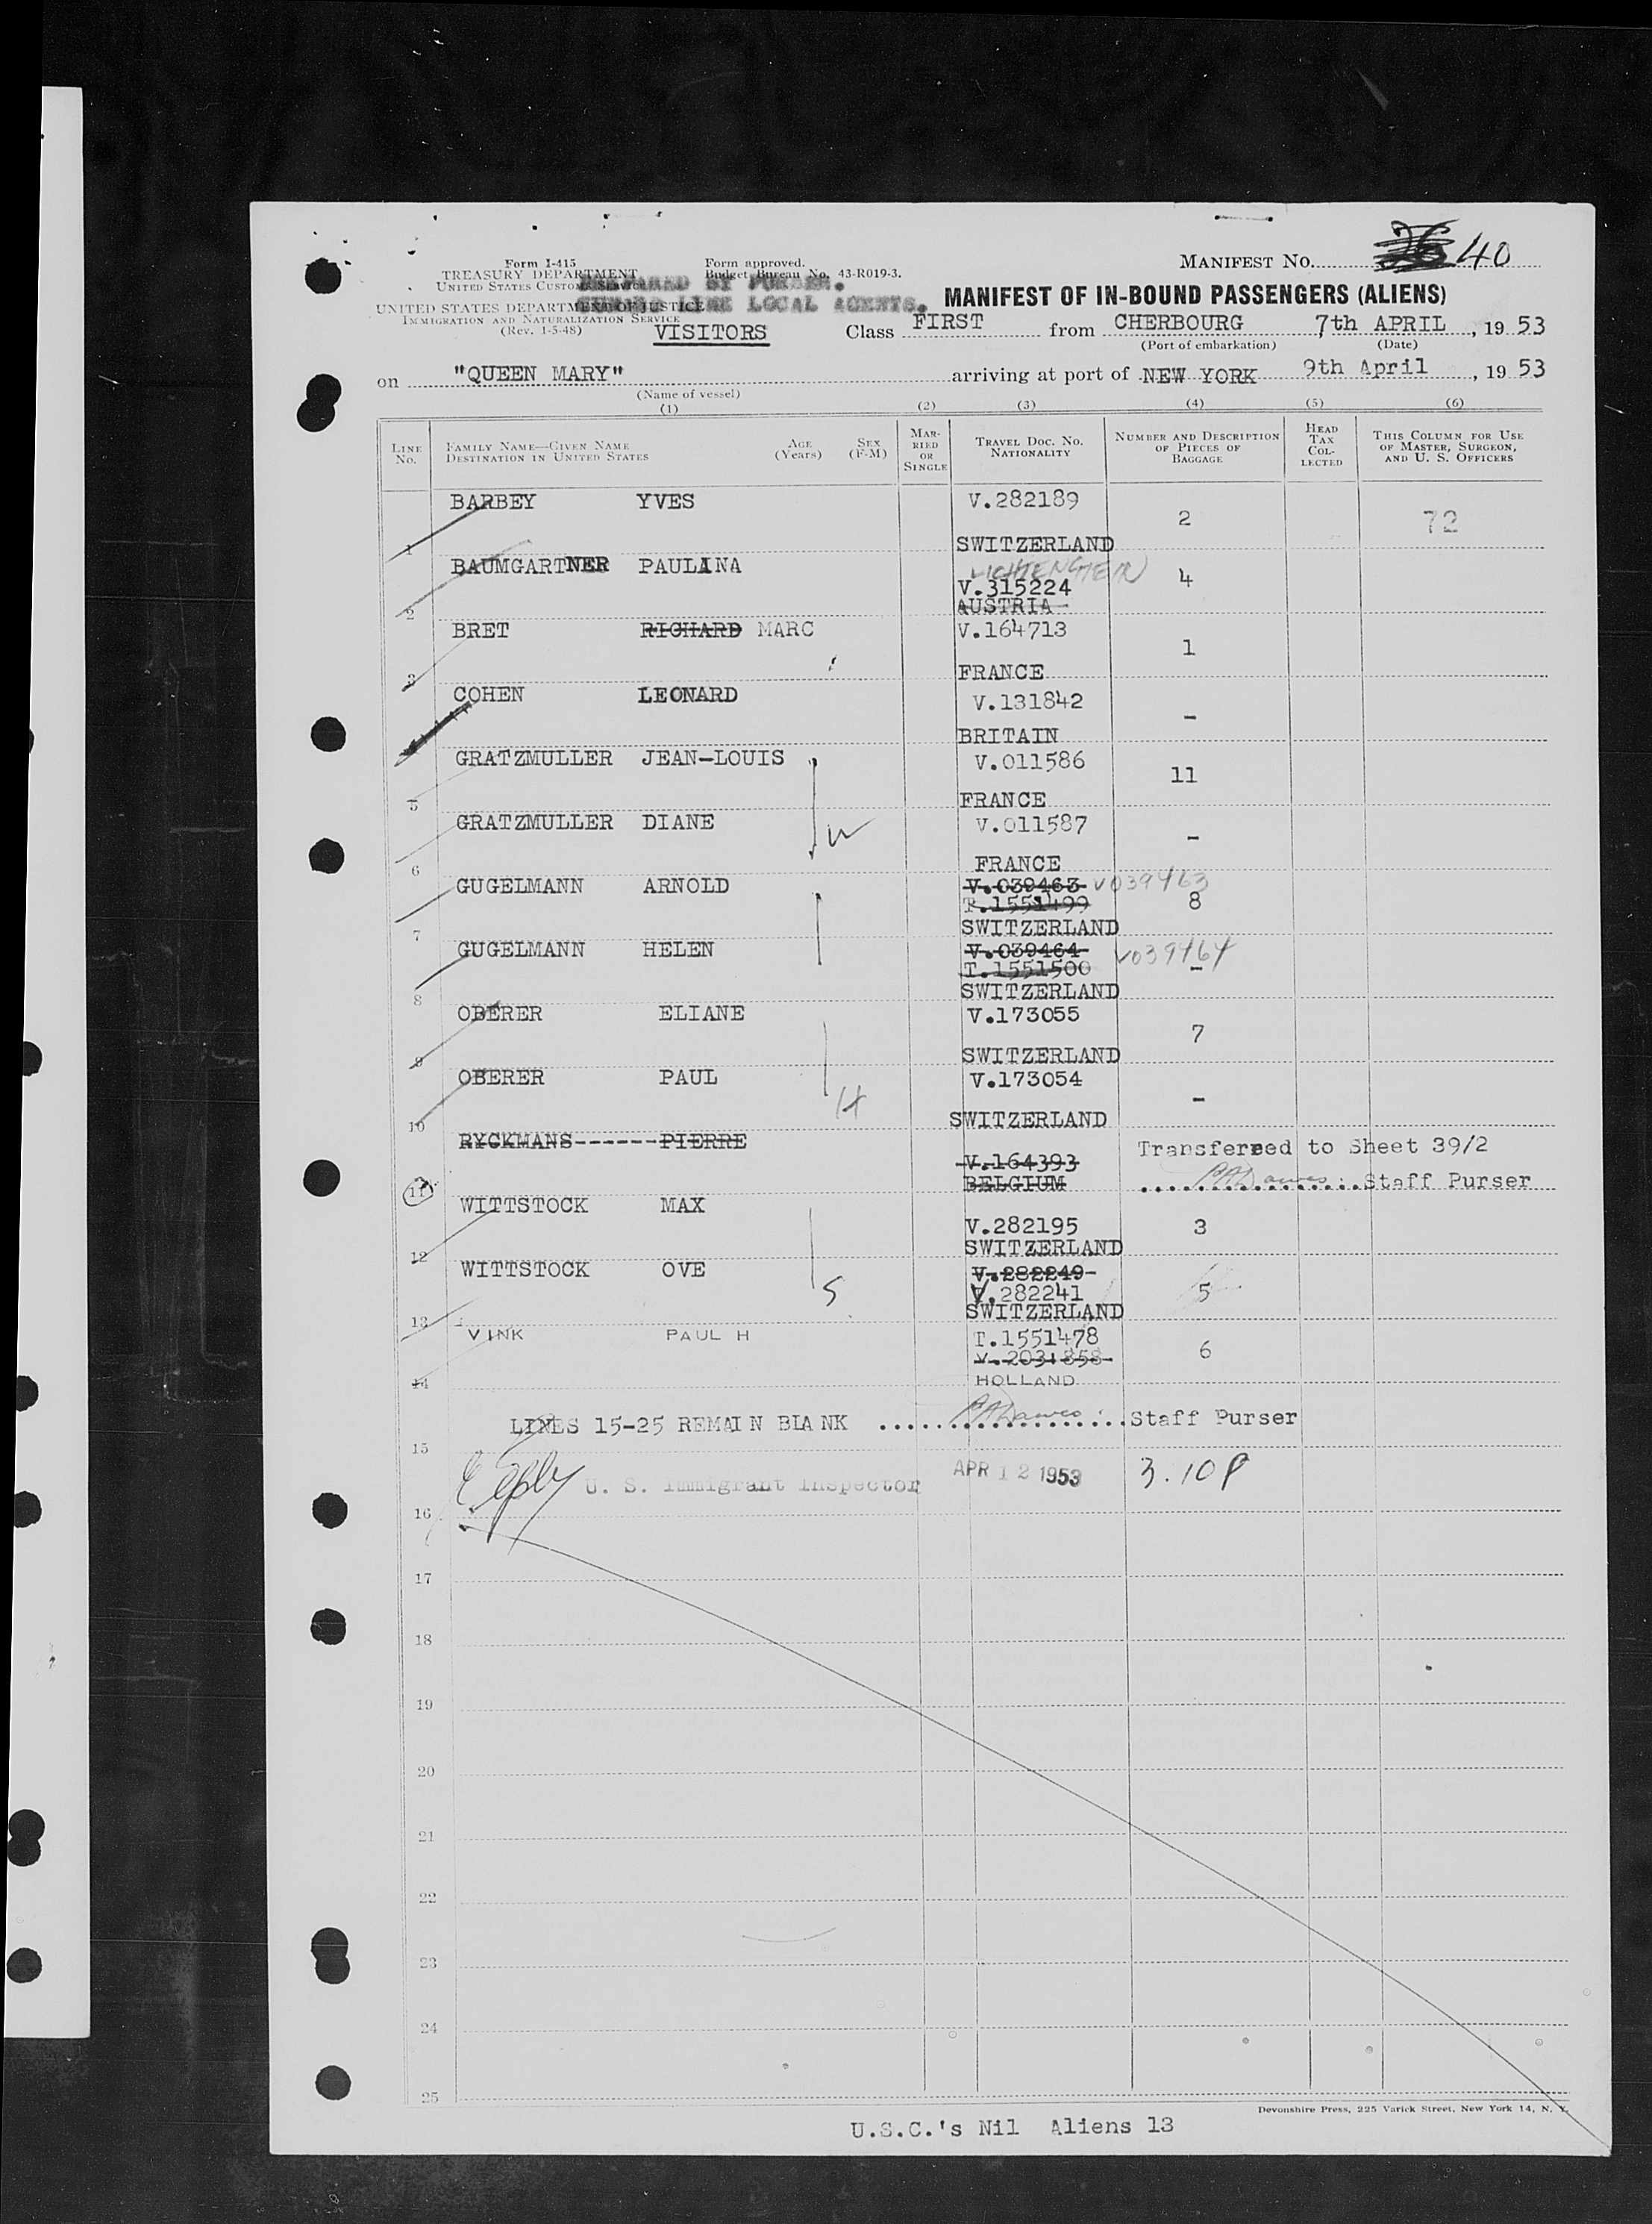 MANIFEST NO. 40
Form I-415
Form approved.
TREASURY DEPARTMENT
Budget Bureau No. 43-R019-3.
UNITED STATES CUSTOMS SERVICE
BY PURSER.
UNITED STATES DEPARTMENT OF JUSTICE
LINE LOCAL AGENTS.
MANIFEST OF IN-BOUND PASSENGERS (ALIENS)
IMMIGRATION AND NATURALIZATION SERVICE
(Rev. 1-5-48)
VISITORS
Class FIRST from CHERBOURG 7th APRIL, 19 53
(Port of embarkation) (Date)
on "QUEEN MARY" arriving at port of NEW YORK 9th April, 19 53
(Name of vessel)
(1) (2) (3) (4) (5) (6)
LINE No. FAMILY NAME—GIVEN NAME DESTINATION IN UNITED STATES AGE (Years) SEX (F-M) MARRIED OR SINGLE TRAVEL DOC. NO. NATIONALITY NUMBER AND DESCRIPTION OF PIECES OF BAGGAGE HEAD TAX COLLECTED THIS COLUMN FOR USE OF MASTER, SURGEON, AND U. S. OFFICERS
BARBEY YVES V.282189
2 72
1 SWITZERLAND
BAUMGARTNER PAULINA LICHTENSTEIN
V.315224 4
2 AUSTRIA
BRET RICHARD MARC V.164713
1
3 FRANCE
COHEN LEONARD V.131842
-
BRITAIN
GRATZMULLER JEAN-LOUIS V.011586
11
5 FRANCE
GRATZMULLER DIANE V.011587
-
6 FRANCE
GUGELMANN ARNOLD V.039463 V039463
T.1551499 8
7 SWITZERLAND
GUGELMANN HELEN V.039464 V039464
T.1551500 -
8 SWITZERLAND
OBERER ELIANE V.173055
7
9 SWITZERLAND
OBERER PAUL V.173054
-
10 SWITZERLAND
RYCKMANS------PIERRE Transferred to Sheet 39/2
V.164393
11 BELGIUM Staff Purser
WITTSTOCK MAX
V.282195 3
12 SWITZERLAND
WITTSTOCK OVE V.282249
V.282241 5
13 SWITZERLAND
VINK PAUL H T.1551478
V.2031858 6
14 HOLLAND
LINES 15-25 REMAIN BLANK Staff Purser
15
U. S. Immigrant Inspector APR 12 1953 3.10 P
16
17
18
19
20
21
22
23
24
25
Devonshire Press, 225 Varick Street, New York 14, N. Y.
U.S.C.'s Nil Aliens 13